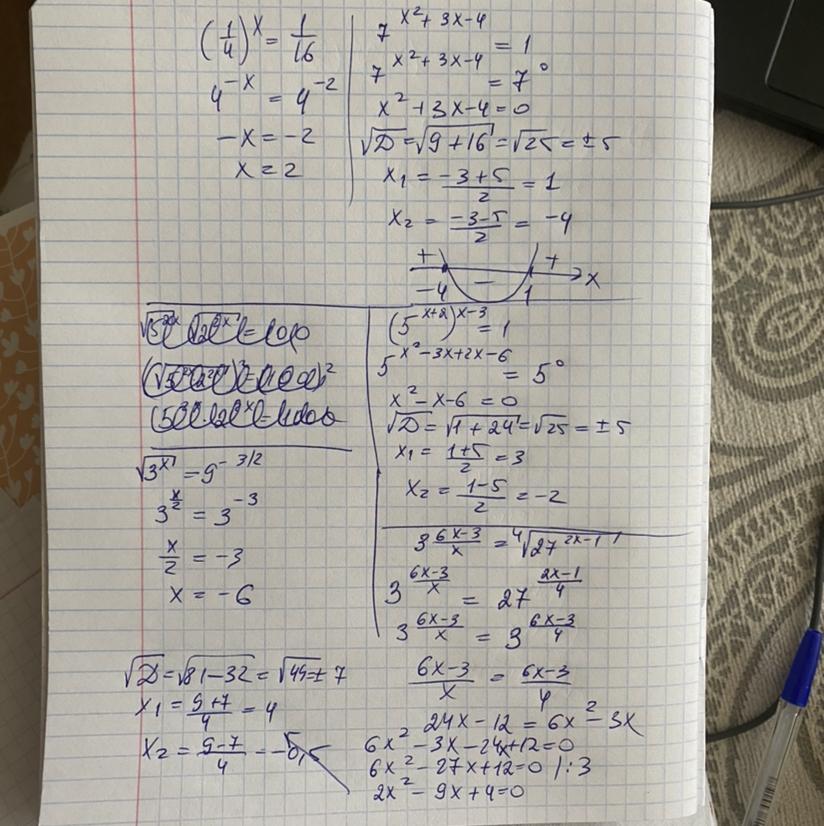 (1/4)^x = 1/16
4^{-x} = 4^{-2}
-x = -2
x = 2
7^{x²+3x-4} = 1
7^{x²+3x-4} = 7^0
x² + 3x - 4 = 0
√D = √(9+16) = √25 = ±5
x₁ = (-3+5)/2 = 1
x₂ = (-3-5)/2 = -4
+ - + x
-4 1
√(3^x) = 9^{-3/2}
3^{x/2} = 3^{-3}
x/2 = -3
x = -6
(5^{x+2})^{x-3} = 1
5^{x²-3x+2x-6} = 5^0
x² - x - 6 = 0
√D = √(1+24) = √25 = ±5
x₁ = (1+5)/2 = 3
x₂ = (1-5)/2 = -2
3^{(6x-3)/x} = ⁴√(27^{2x-1})
3^{(6x-3)/x} = 27^{(2x-1)/4}
3^{(6x-3)/x} = 3^{(6x-3)/4}
(6x-3)/x = (6x-3)/4
24x - 12 = 6x² - 3x
6x² - 3x - 24x + 12 = 0
6x² - 27x + 12 = 0 |:3
2x² - 9x + 4 = 0
√D = √(81-32) = √49 = ±7
x₁ = (9+7)/4 = 4
x₂ = (9-7)/4 =